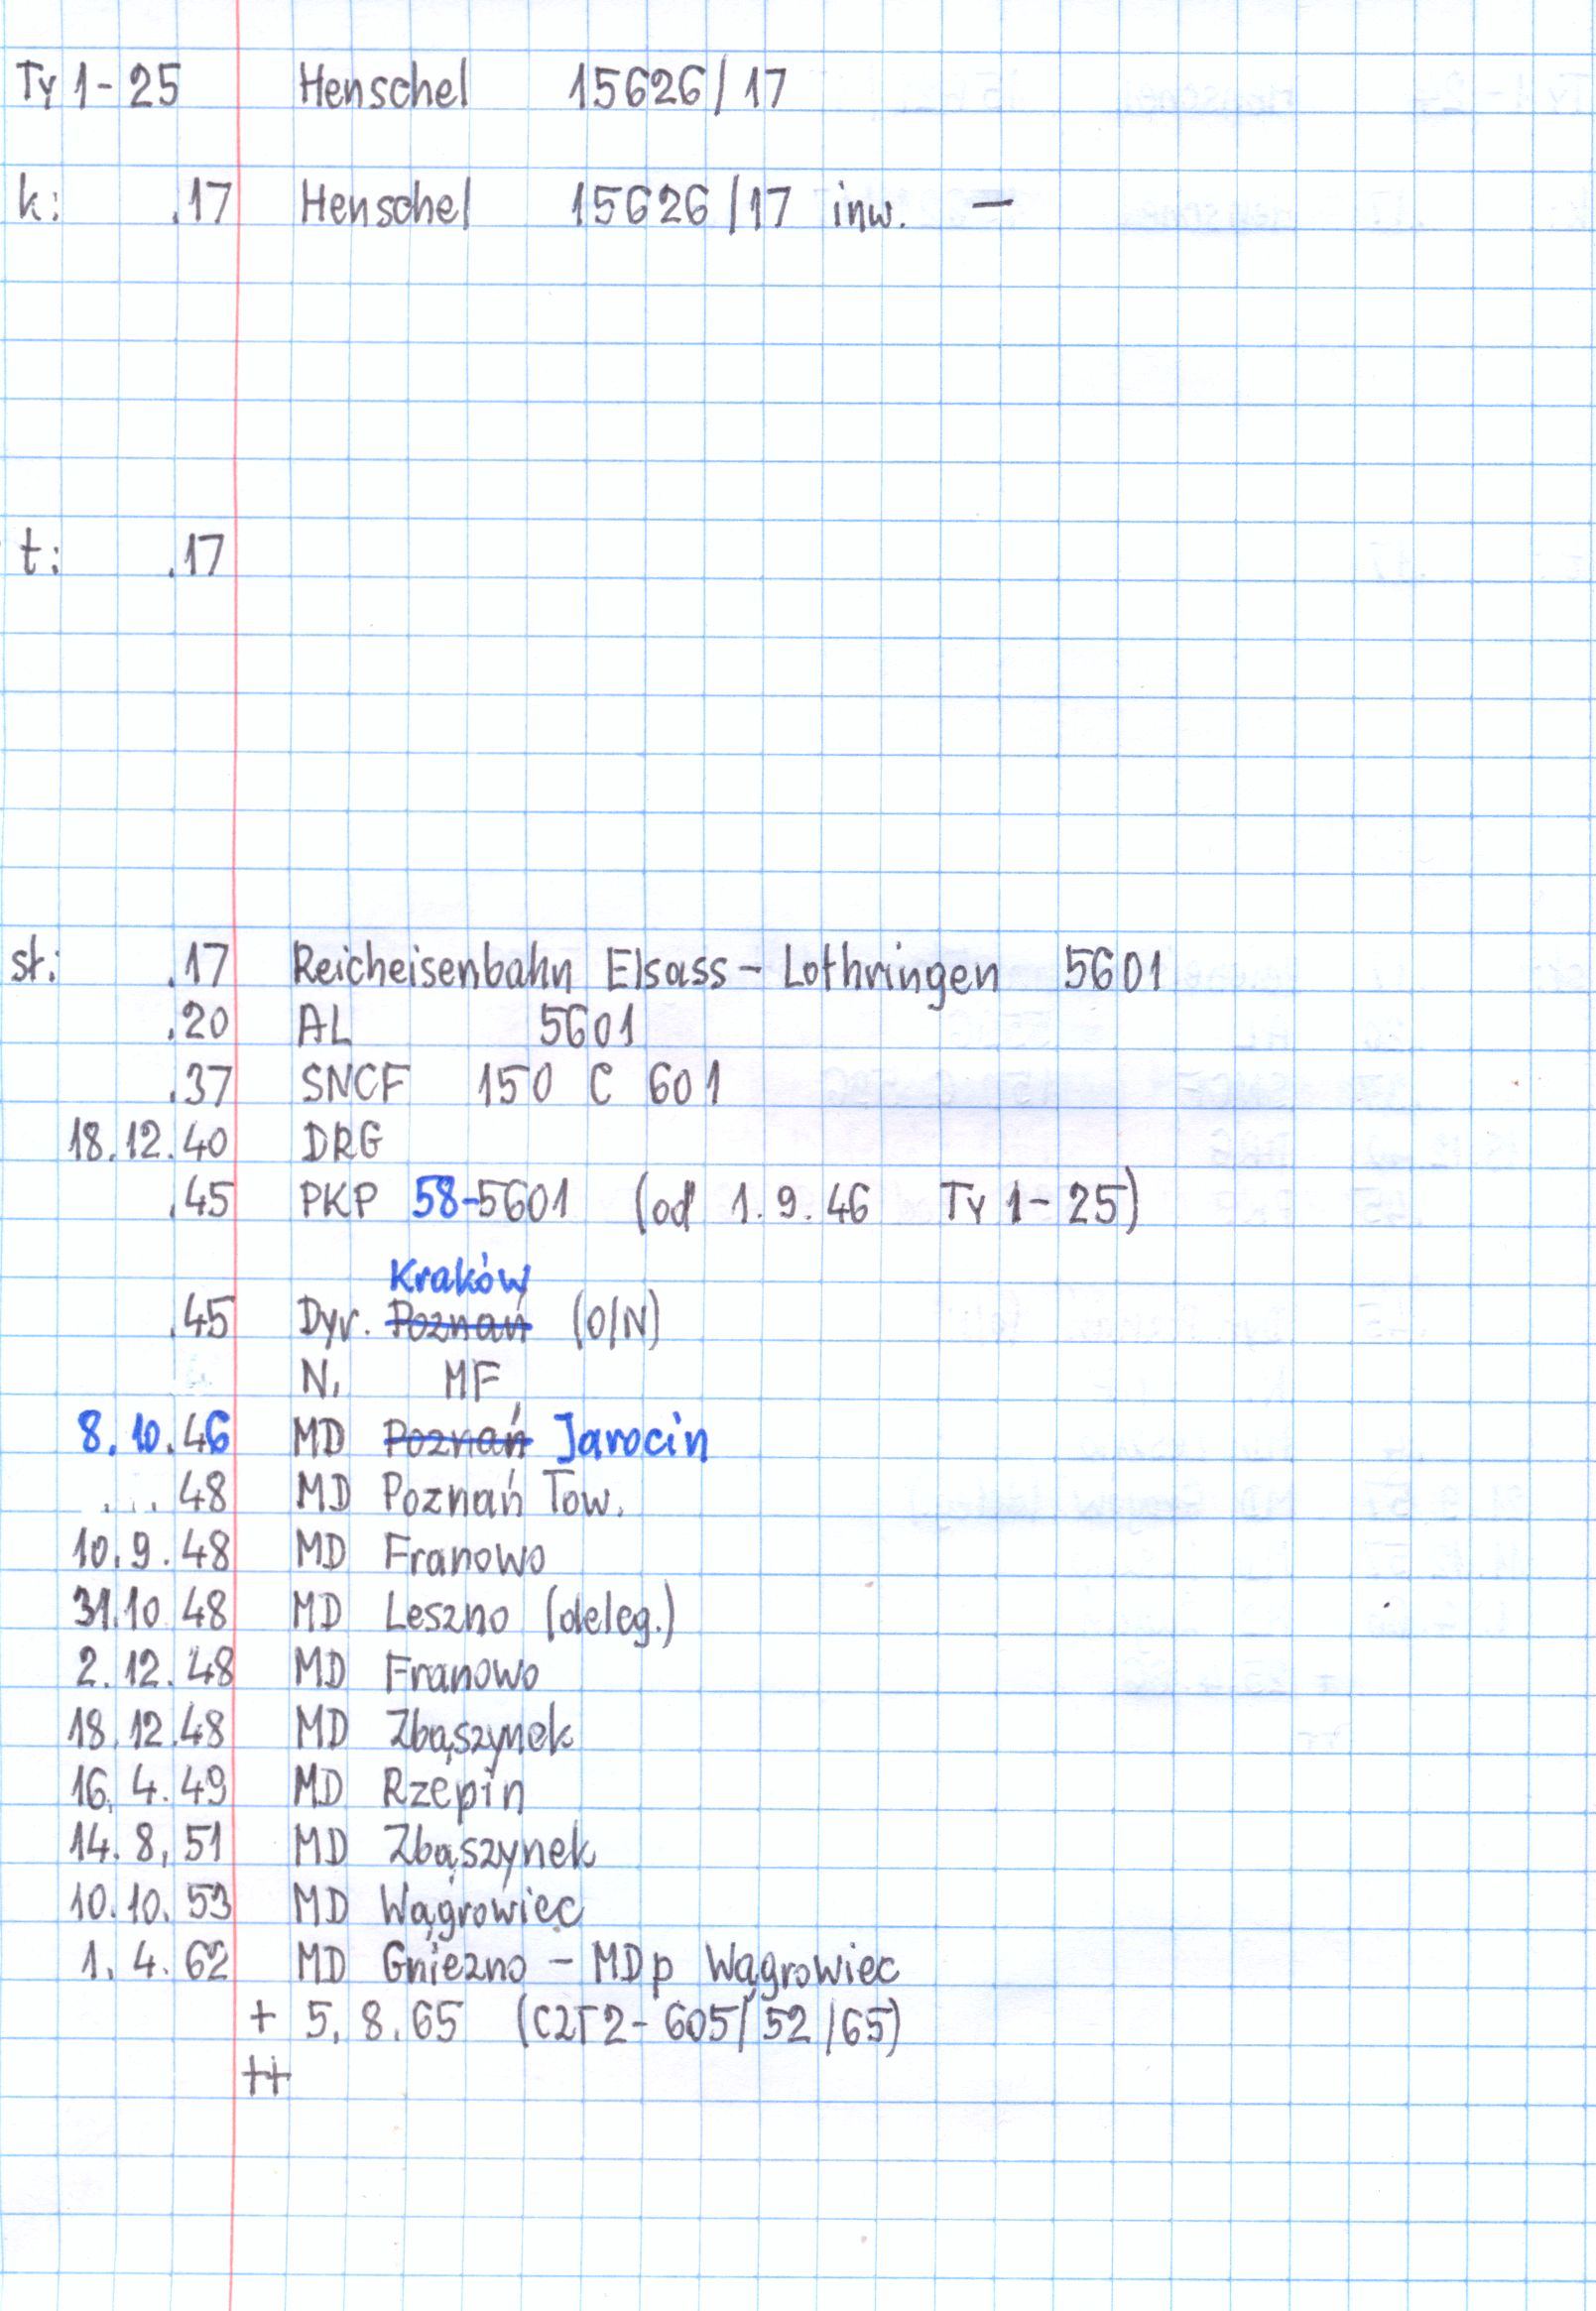 Ty 1-25 Henschel 15626/17
k: .17 Henschel 15626/17 inw. —
t: .17
st: .17 Reicheisenbahn Elsass - Lothringen 5601
.20 AL 5601
.37 SNCF 150 C 601
18.12.40 DRG
.45 PKP 58-5601 (od 1.9.46 Ty 1-25)
Kraków
.45 Dyr. Poznań (O/N)
N. MF
8.10.46 MD Poznań Jarocin
. . . 48 MD Poznań Tow.
10.9.48 MD Franowo
31.10 48 MD Leszno (deleg.)
2.12.48 MD Franowo
18.12.48 MD Zbąszynek
16.4.49 MD Rzepin
14.8.51 MD Zbąszynek
10.10.53 MD Wągrowiec
1.4.62 MD Gniezno - MDp Wągrowiec
+ 5.8.65 (C2T2-605/52/65)
++